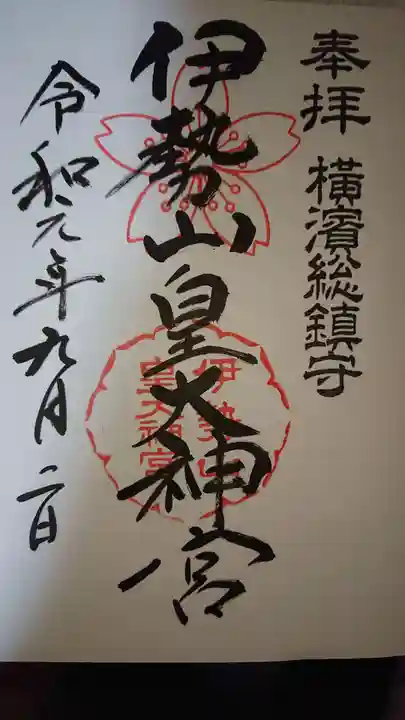 奉拝 橫濱総鎮守
伊勢山皇大神宮
伊勢山
皇大神宮
令和元年九月二日